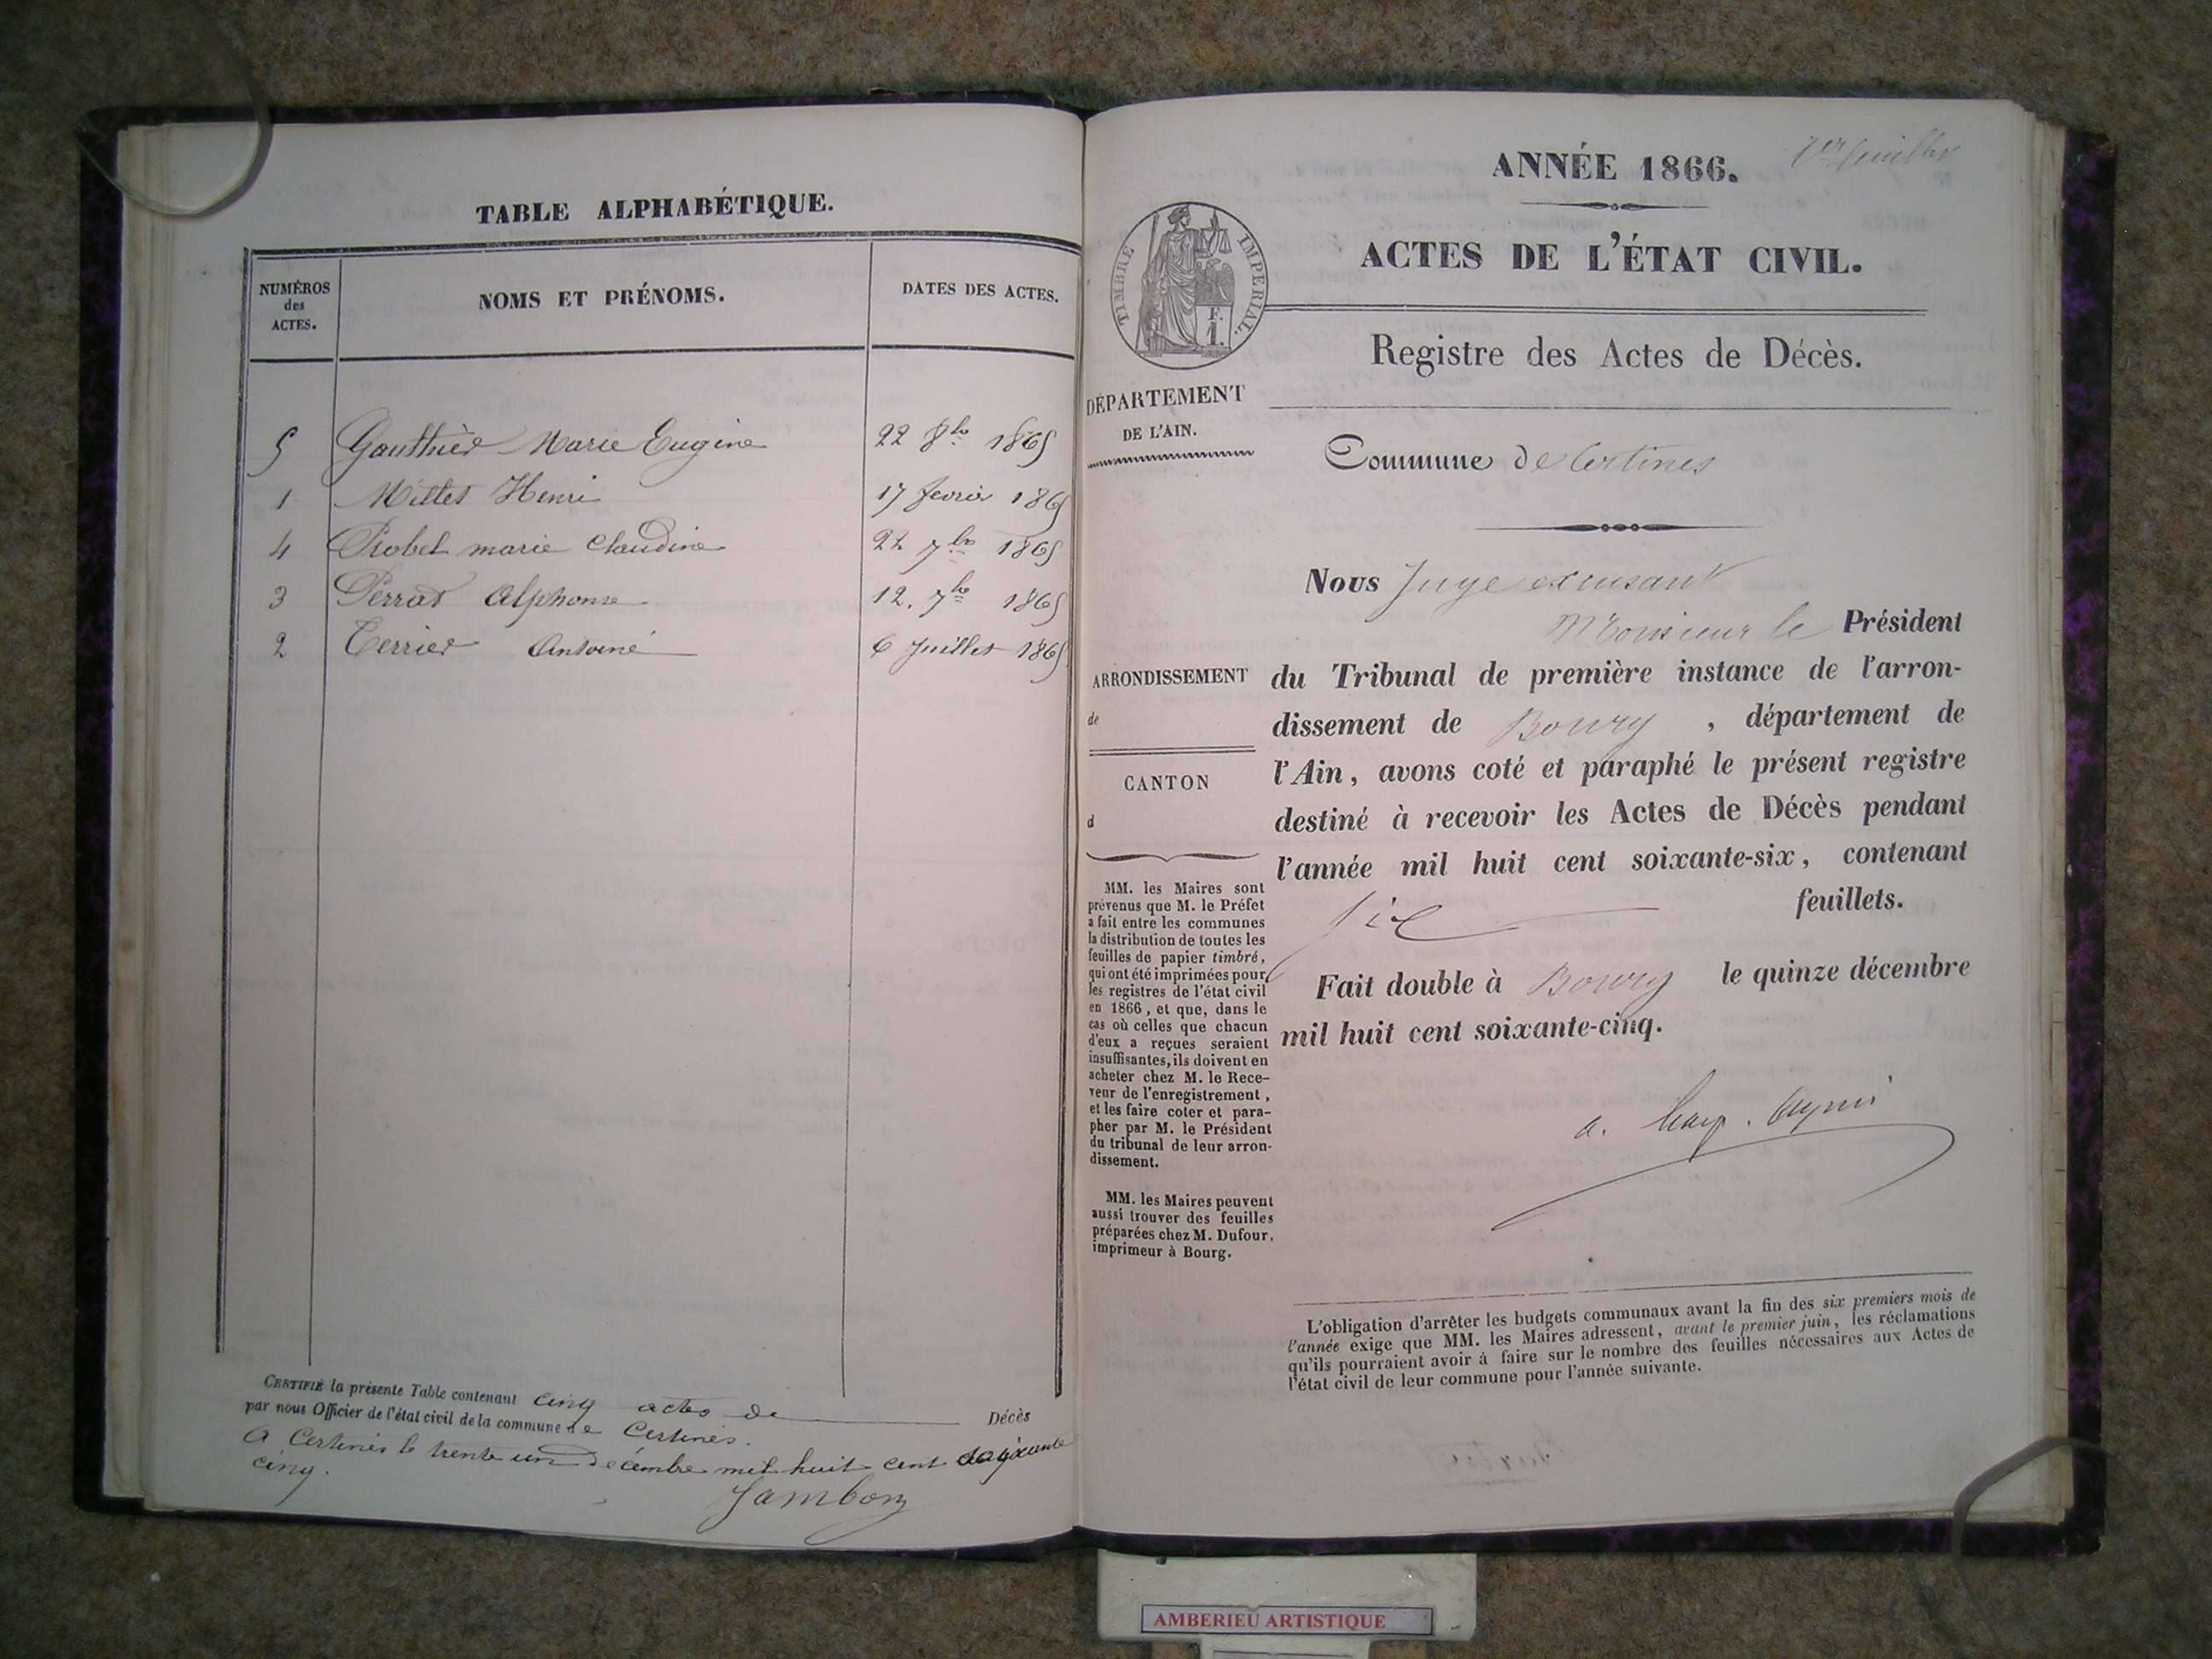 TABLE ALPHABÉTIQUE.
NUMÉROS
des
ACTES.
NOMS ET PRÉNOMS.
DATES DES ACTES.
5 Gauthier Marie Eugine 22 8bre 1865
1 Millet Henri 17 fevrier 1865
4 Probel marie Claudine 22 7bre 1865
3 Perrad Alphonse 12. 7bre 1865
2 Terrier Antoine 6 Juillet 1865
CERTIFIÉ la présente Table contenant cinq actes de Décès
par nous Officier de l'état civil de la commune de Certines.
A Certines le trente un décembre mil huit cent soixante
cinq.
Jambon
ANNÉE 1866.
1er feuillet
ACTES DE L'ÉTAT CIVIL.
TIMBRE IMPERIAL.
F.
1.
Registre des Actes de Décès.
DÉPARTEMENT
DE L'AIN.
Commune de Certines
ARRONDISSEMENT
de
CANTON
d
MM. les Maires sont
prévenus que M. le Préfet
a fait entre les communes
la distribution de toutes les
feuilles de papier timbré,
qui ont été imprimées pour
les registres de l'état civil
en 1866, et que, dans le
cas où celles que chacun
d'eux a reçues seraient
insuffisantes, ils doivent en
acheter chez M. le Rece-
veur de l'enregistrement,
et les faire coter et para-
pher par M. le Président
du tribunal de leur arron-
dissement.
MM. les Maires peuvent
aussi trouver des feuilles
préparées chez M. Dufour,
imprimeur à Bourg.
Nous Juge excusant
Monsieur le Président
du Tribunal de première instance de l'arron-
dissement de Bourg, département de
l'Ain, avons coté et paraphé le présent registre
destiné à recevoir les Actes de Décès pendant
l'année mil huit cent soixante-six, contenant
six feuillets.
Fait double à Bourg le quinze décembre
mil huit cent soixante-cinq.
L'obligation d'arrêter les budgets communaux avant la fin des six premiers mois de
l'année exige que MM. les Maires adressent, avant le premier juin, les réclamations
qu'ils pourraient avoir à faire sur le nombre des feuilles nécessaires aux Actes de
l'état civil de leur commune pour l'année suivante.
AMBERIEU ARTISTIQUE